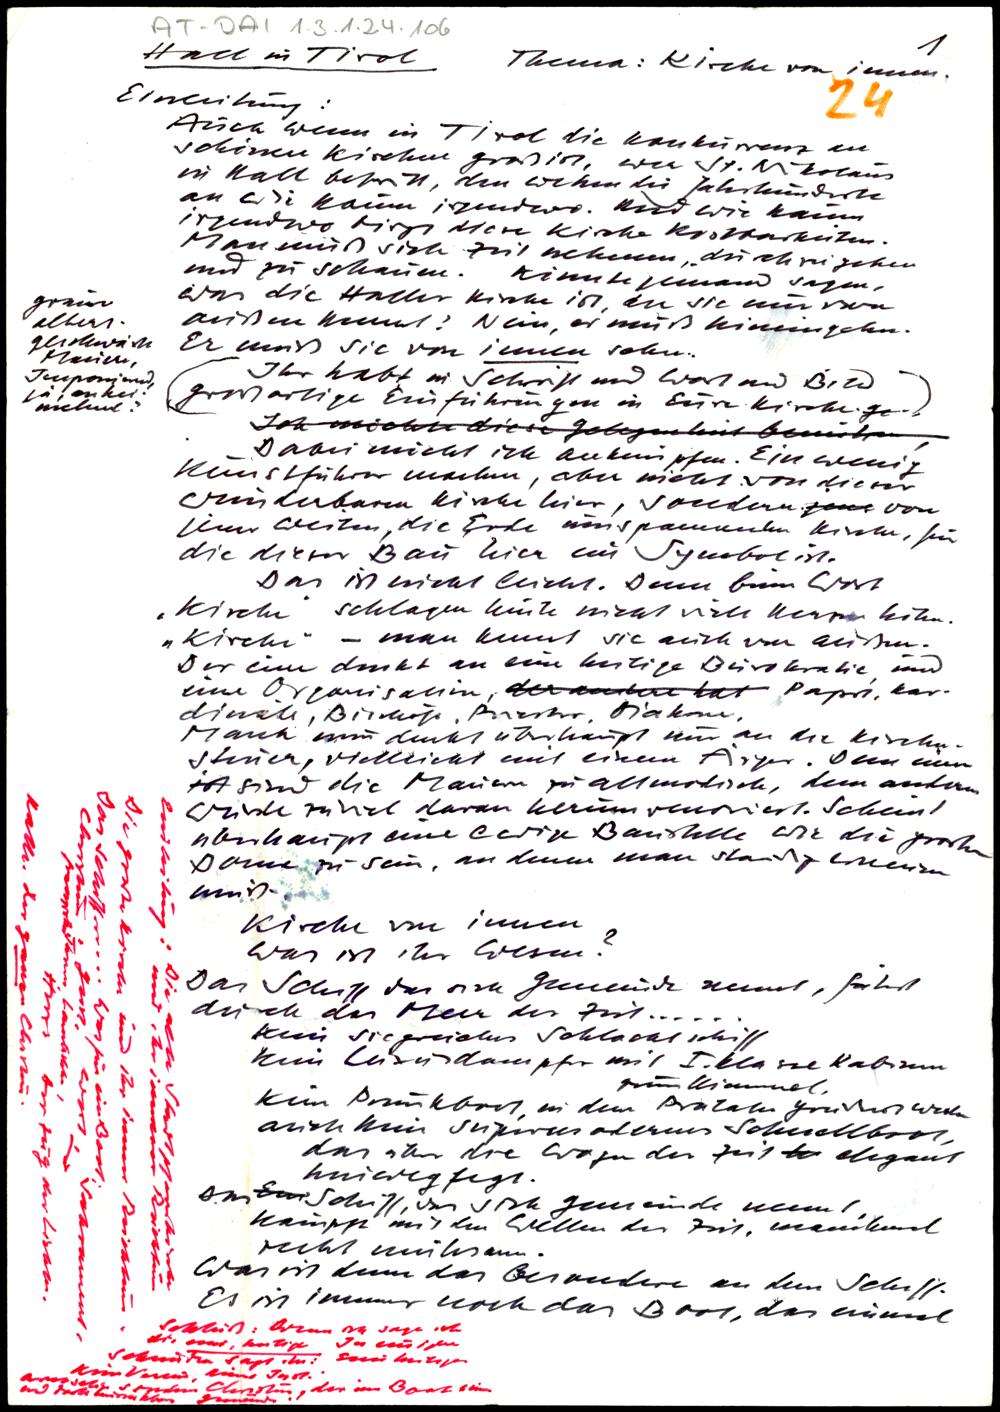 AT-DAI 1.3.1.24.106
1
Hall in Tirol Thema: Kirche von innen.
24
Einleitung:
Auch wenn in Tirol die Konkurrenz an
schönen Kirchen groß ist, wer St. Nikolaus
in Hall betritt, den wehen die Jahrhunderte
an wie kaum irgendwo. Und wie kaum
irgendwo birgt diese Kirche Kostbarkeiten.
Man muß sich Zeit nehmen, durchzugehen
und zu schauen. Könnte jemand sagen,
was die Haller Kirche ist, der sie nur von
außen kennt? Nein, er muß hineingehen.
Er muß sie von innen sehn.
graue
alters-
geschwärzte
Mauern,
Imponierend,
ja, aber
Ihr habt in Schrift und Wort und Bild
großartige Einführungen in Eure Kirche ge-
Ich möchte diese Gelegenheit benützen
Dabei möcht ich anknüpfen. Ein wenig
Kunstführer machen, aber nicht von dieser
wunderbaren Kirche hier, sondern jene von
jener weiten, die Erde umspannenden Kirche, für
die dieser Bau hier ein Symbol ist.
Das ist nicht leicht. Denn beim Wort
„Kirche" schlagen heute nicht viele Herzen höher.
„Kirche" – man kennt sie auch von außen.
Der eine denkt an eine heilige Bürokratie, und
eine Organisation, der andere hat Papst, Kar-
dinäle, Bischöfe, Priester, Diakone.
Manch einer denkt überhaupt nur an die Kirchen-
steuer, vielleicht mit einem Ärger. Dem einen
ist sind die Mauern zu altmodisch, dem andern
würde zuviel daran herumrenoviert. Scheint
überhaupt eine ewige Baustelle wie die großen
Dome zu sein, an denen man ständig erneuern
muß.
Kirche von innen
Was ist ihr Wesen?
Das Schiff das sich Gemeinde nennt, fährt
durch das Meer der Zeit......
Kein siegreiches Schlachtschiff
Kein Luxusdampfer mit I. Klasse Kabinen
zum Himmel,
Kein Prunkboot, in dem Prälaten gerudert werden
auch kein supermodernes Schnellboot,
das über die Wogen der Zeit elegant
hinwegfegt.
Das Ein Schiff, das sich Gemeinde nennt,
kämpft mit den Wellen der Zeit, manchmal
recht mühsam.
Was ist denn das Besondere an dem Schiff.
Es ist immer noch das Boot, das einmal
Einleitung: Die alte Stadtpfarrkirche
und ihr innerer Reichtum
Die große Kirche und ihr innerer Reichtum.
Das Schiff.... Was für ein Boot:
Christus Geist, Wort, Sakrament,
Herz Der Zug der Liebe.
der ganze Christus.
Schluß: Wenn ich sage ich
die eine, heilige
sagt ihr:
Kein Verein, keine
sondern Christus, der im Boot
und Gemeinde